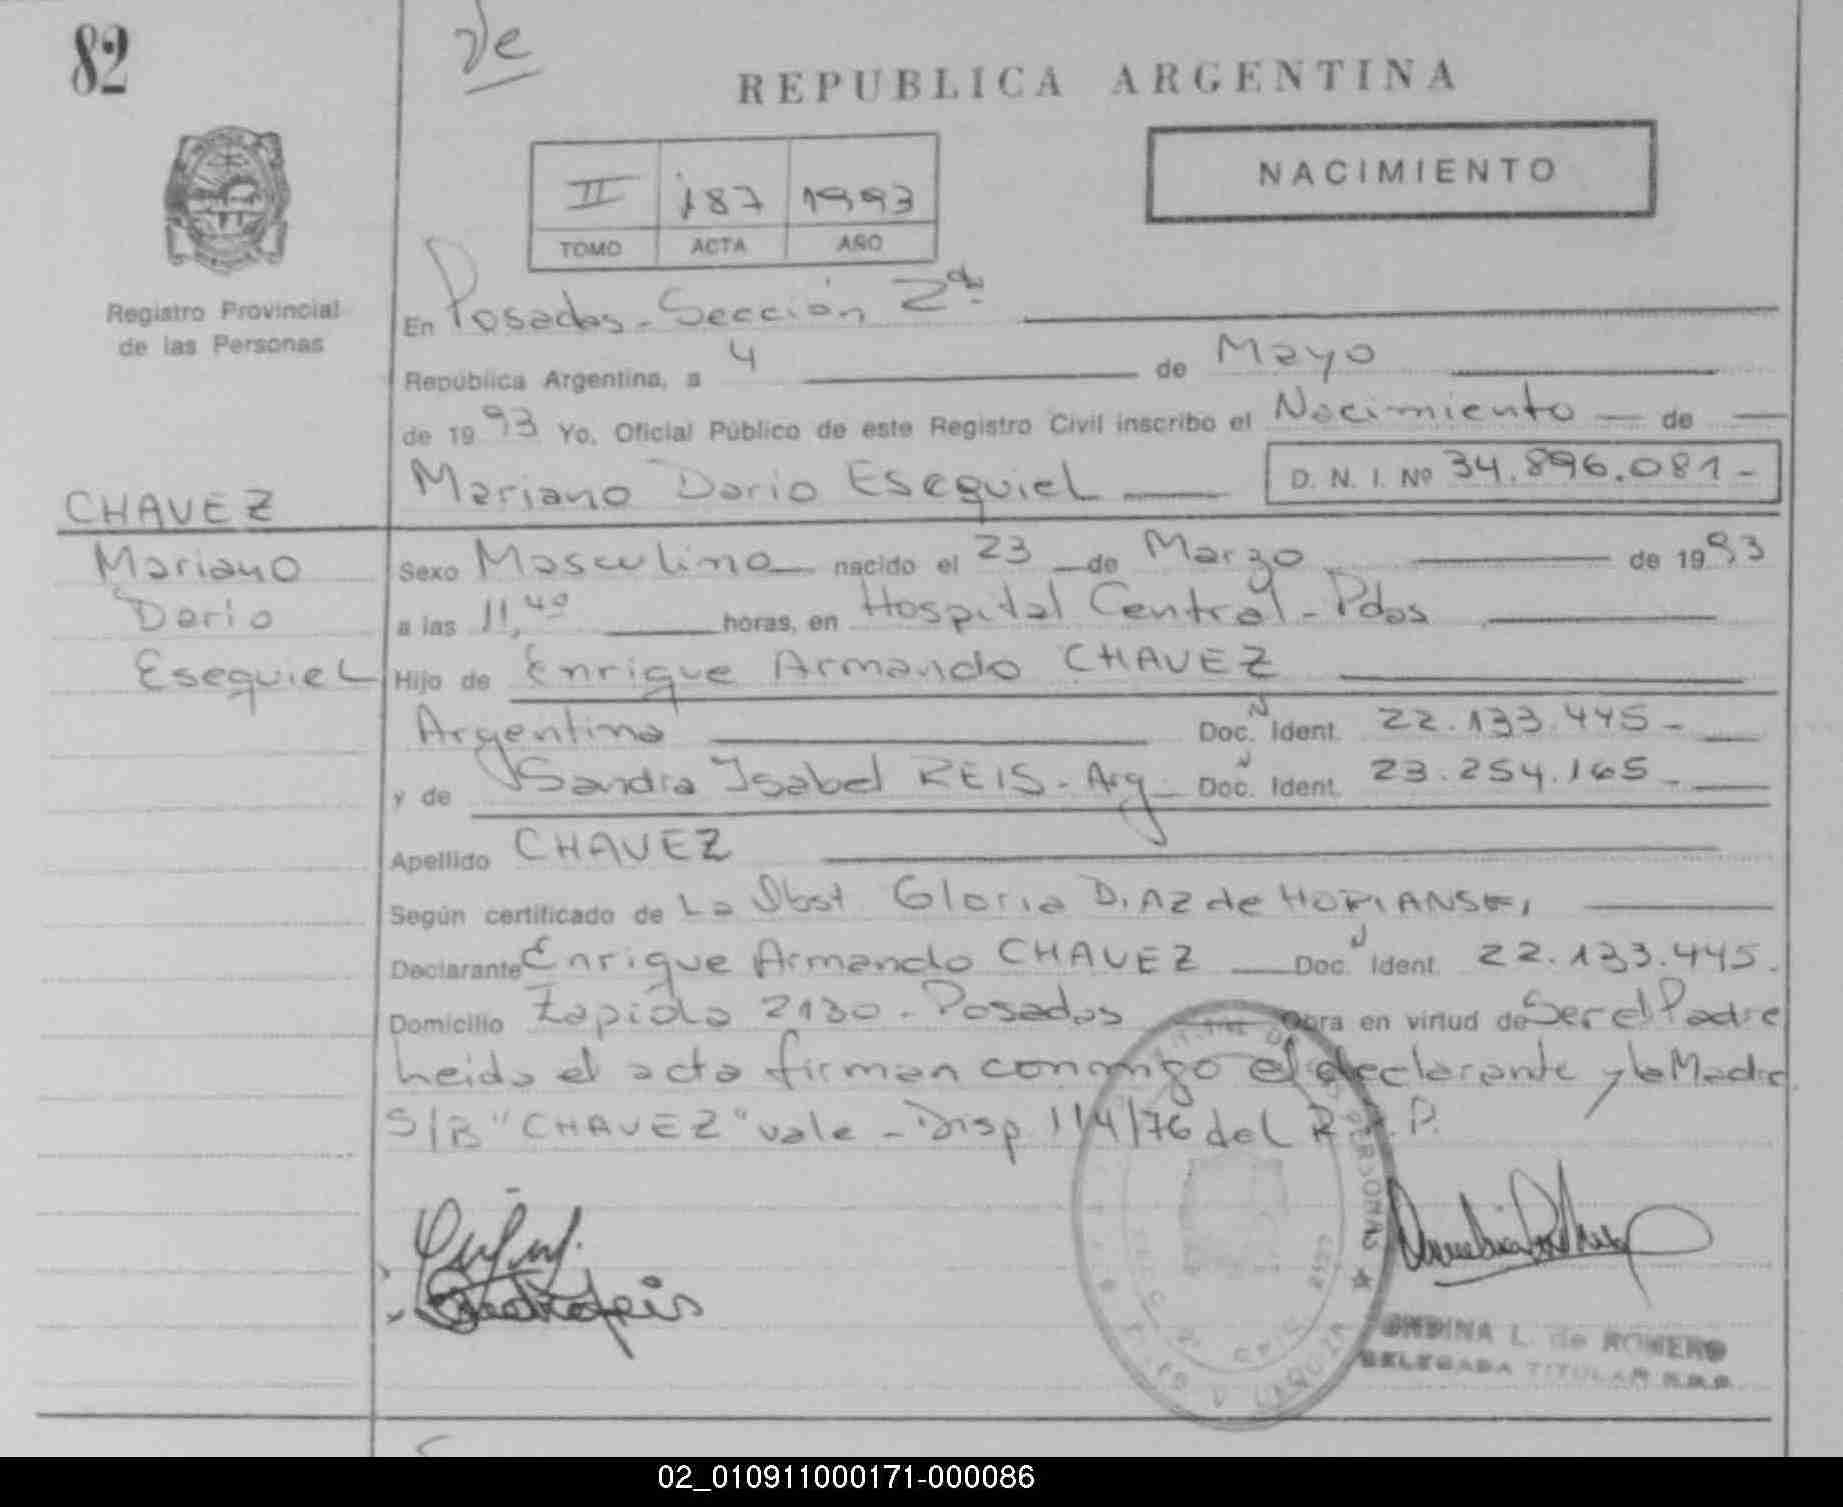 82
REPUBLICA ARGENTINA
NACIMIENTO
II 187 1993
TOMO ACTA AÑO
Registro Provincial
de las Personas
En Posadas - Sección 2da
República Argentina, a 4 de Mayo
de 1993 Yo, Oficial Público de este Registro Civil inscribo el Nacimiento de
Mariano Dario Esequiel D. N. I. Nº 34.896.081 -
CHAVEZ
Mariano
Dario
Esequiel
Sexo Masculino nacido el 23 de Marzo de 1993
a las 11,40 horas, en Hospital Central - Pdas
Hijo de Enrique Armando CHAVEZ
Argentino Doc. Ident. 22.133.445 -
y de Sandra Isabel REIS - Arg - Doc. Ident. 23.254.165 -
Apellido CHAVEZ
Según certificado de La Obst Gloria DIAZ de
Declarante Enrique Armando CHAVEZ Doc. Ident. 22.133.445.
Domicilio Zapiola 2130 - Posadas Obra en virtud de Ser el Padre
Leida el acta firman conmigo el declarante y la Madre
S/B "CHAVEZ" vale - Disp 114/76 del R. P. P.
PERSONAS
ONDINA L. de ROMERO
DELEGADA TITULAR
02_010911000171-000086